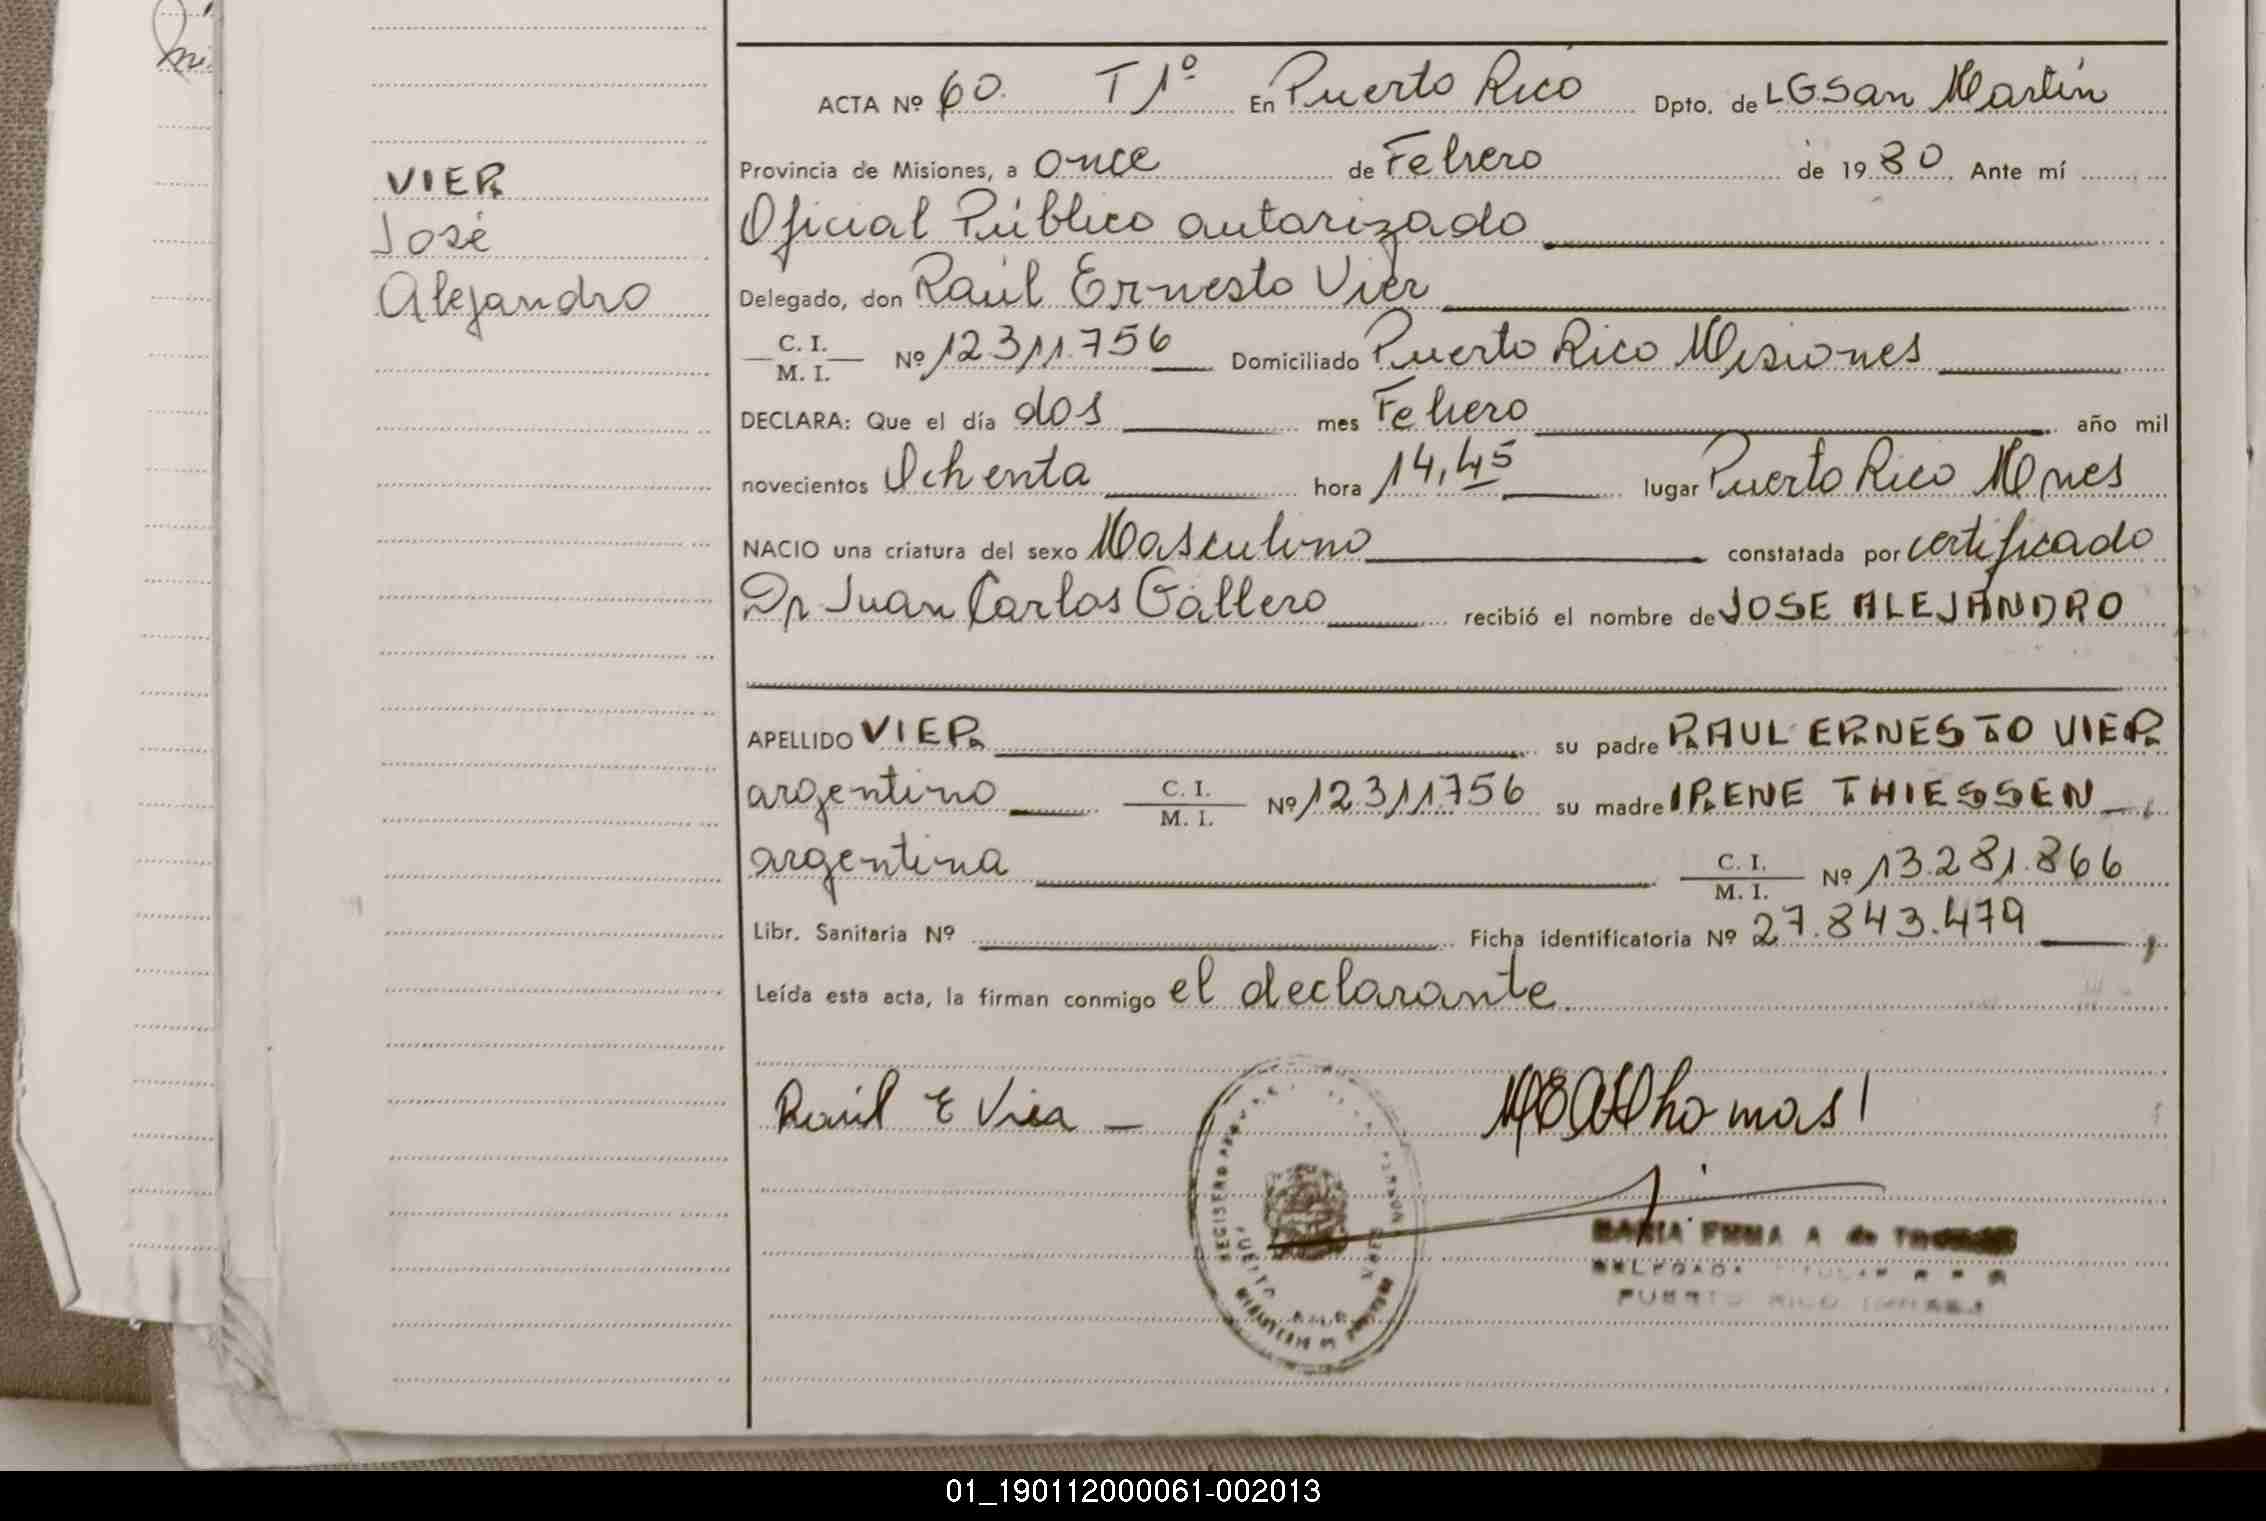 VIER
José
Alejandro
ACTA Nº 60. T 1º En Puerto Rico Dpto. de LGSan Martín
Provincia de Misiones, a once de Febrero de 1980. Ante mí
Oficial Público autorizado
Delegado, don Raúl Ernesto Vier
C. I.
M. I.
Nº 12311756 Domiciliado Puerto Rico Misiones
DECLARA: Que el día dos mes Febrero año mil
novecientos Ochenta hora 14,45 lugar Puerto Rico Mnes
NACIO una criatura del sexo Masculino constatada por certificado
Dr Juan Carlos Gallero recibió el nombre de JOSE ALEJANDRO
APELLIDO VIER su padre RAUL ERNESTO VIER
argentino C. I. M. I. Nº 12311756 su madre IRENE THIESSEN,
argentina C. I. M. I. Nº 13.281.866
Libr. Sanitaria Nº Ficha identificatoria Nº 27.843.479,
Leída esta acta, la firman conmigo el declarante.
Raúl E Vier
MARIA EMMA A de
DELEGADA TITULAR
PUERTO RICO
01_190112000061-002013